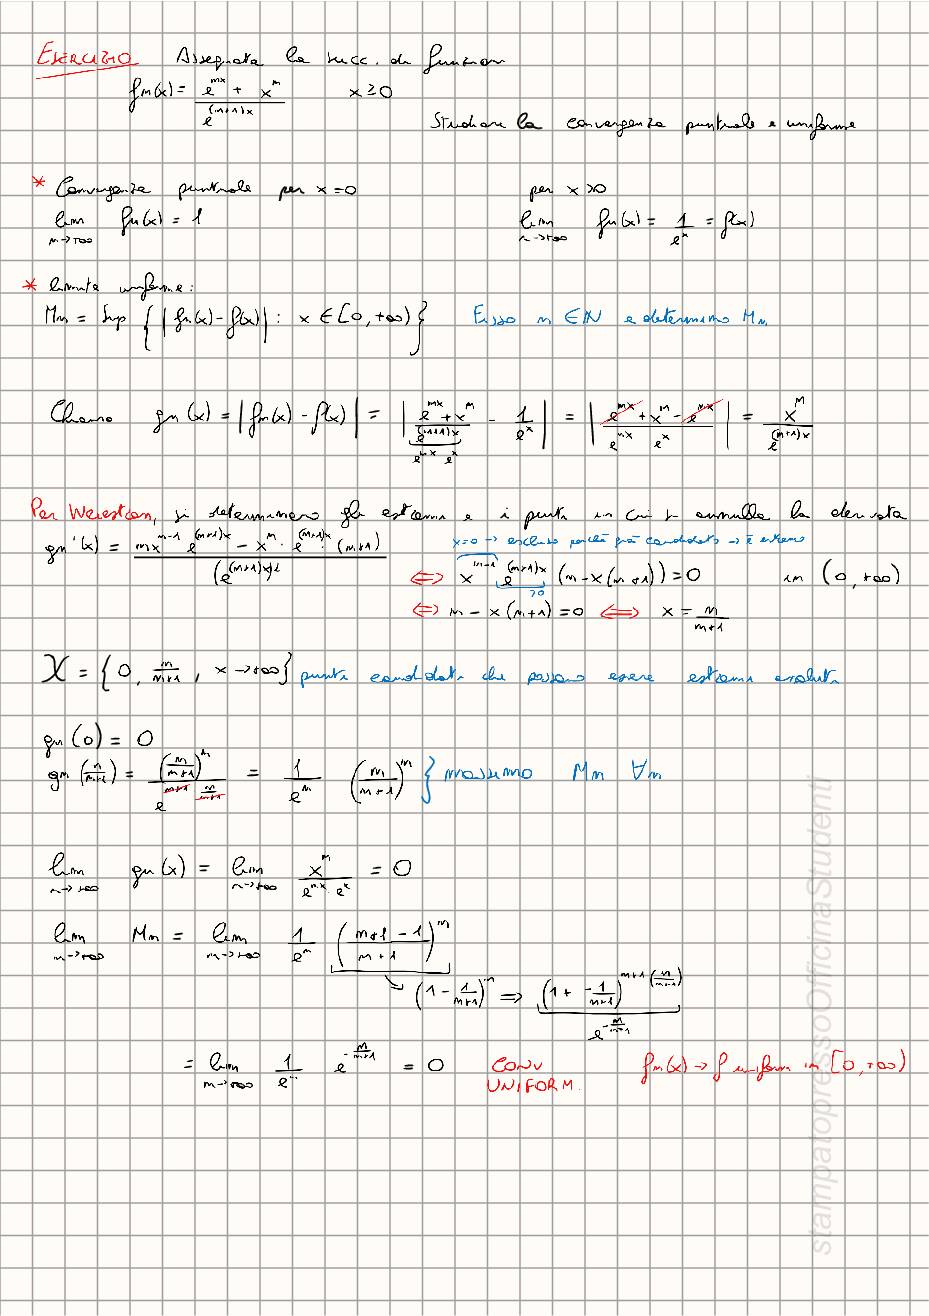 ESERCIZIO Assegnata la succ. di funzioni
fn(x) = (e^{nx} + x^n) / e^{(n+1)x} x ≥ 0
Studiare la convergenza puntuale e uniforme
* Convergenza puntuale per x = 0 per x > 0
lim_{n→+∞} fn(x) = 1 lim_{n→+∞} fn(x) = 1/e^x = f(x)
* limite uniforme:
Mn = Sup { | fn(x) - f(x) | : x ∈ [0, +∞) } Fisso n ∈ IN e determino Mn
Chiamo gn(x) = | fn(x) - f(x) | = | (e^{nx} + x^n) / e^{(n+1)x} - 1/e^x | = | (e^{nx} + x^n - e^{nx}) / (e^{nx} e^x) | = x^n / e^{(n+1)x}
e^{nx} e^x
Per Weierstrass, si determinano gli estremi e i punti in cui si annulla la derivata
x=0 → escluso perché già candidato → è estremo
gn'(x) = (n x^{n-1} e^{(n+1)x} - x^n · e^{(n+1)x} · (n+1)) / (e^{(n+1)x})^2
⇔ x^{n-1} e^{(n+1)x} (n - x(n+1)) = 0 in (0, +∞)
>0
⇔ n - x(n+1) = 0 ⇔ x = n/(n+1)
X = { 0, n/(n+1), x→+∞ } punti candidati che possono essere estremi assoluti
gn(0) = 0
gn(n/(n+1)) = (n/(n+1))^n / e^{(n+1) n/(n+1)} = 1/e^n (n/(n+1))^n } massimo Mn ∀n
lim_{n→+∞} gn(x) = lim_{n→+∞} x^n / (e^{nx} · e^x) = 0
lim_{n→+∞} Mn = lim_{n→+∞} 1/e^n ((n+1-1)/(n+1))^n
(1 - 1/(n+1))^n ⇒ (1 + -1/(n+1))^{n+1 (n/(n+1))}
e^{-n/(n+1)}
= lim_{n→+∞} 1/e^n e^{-n/(n+1)} = 0 CONV fn(x) → f uniform in [0, +∞)
UNIFORM.
stampatopressoOfficinaStudenti